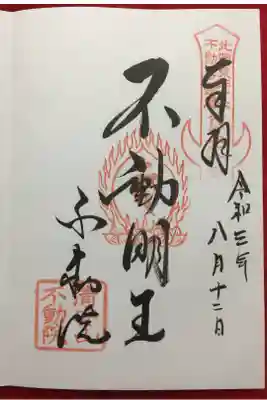 令和三年
八月十二日
不動明王
不動院
不動院